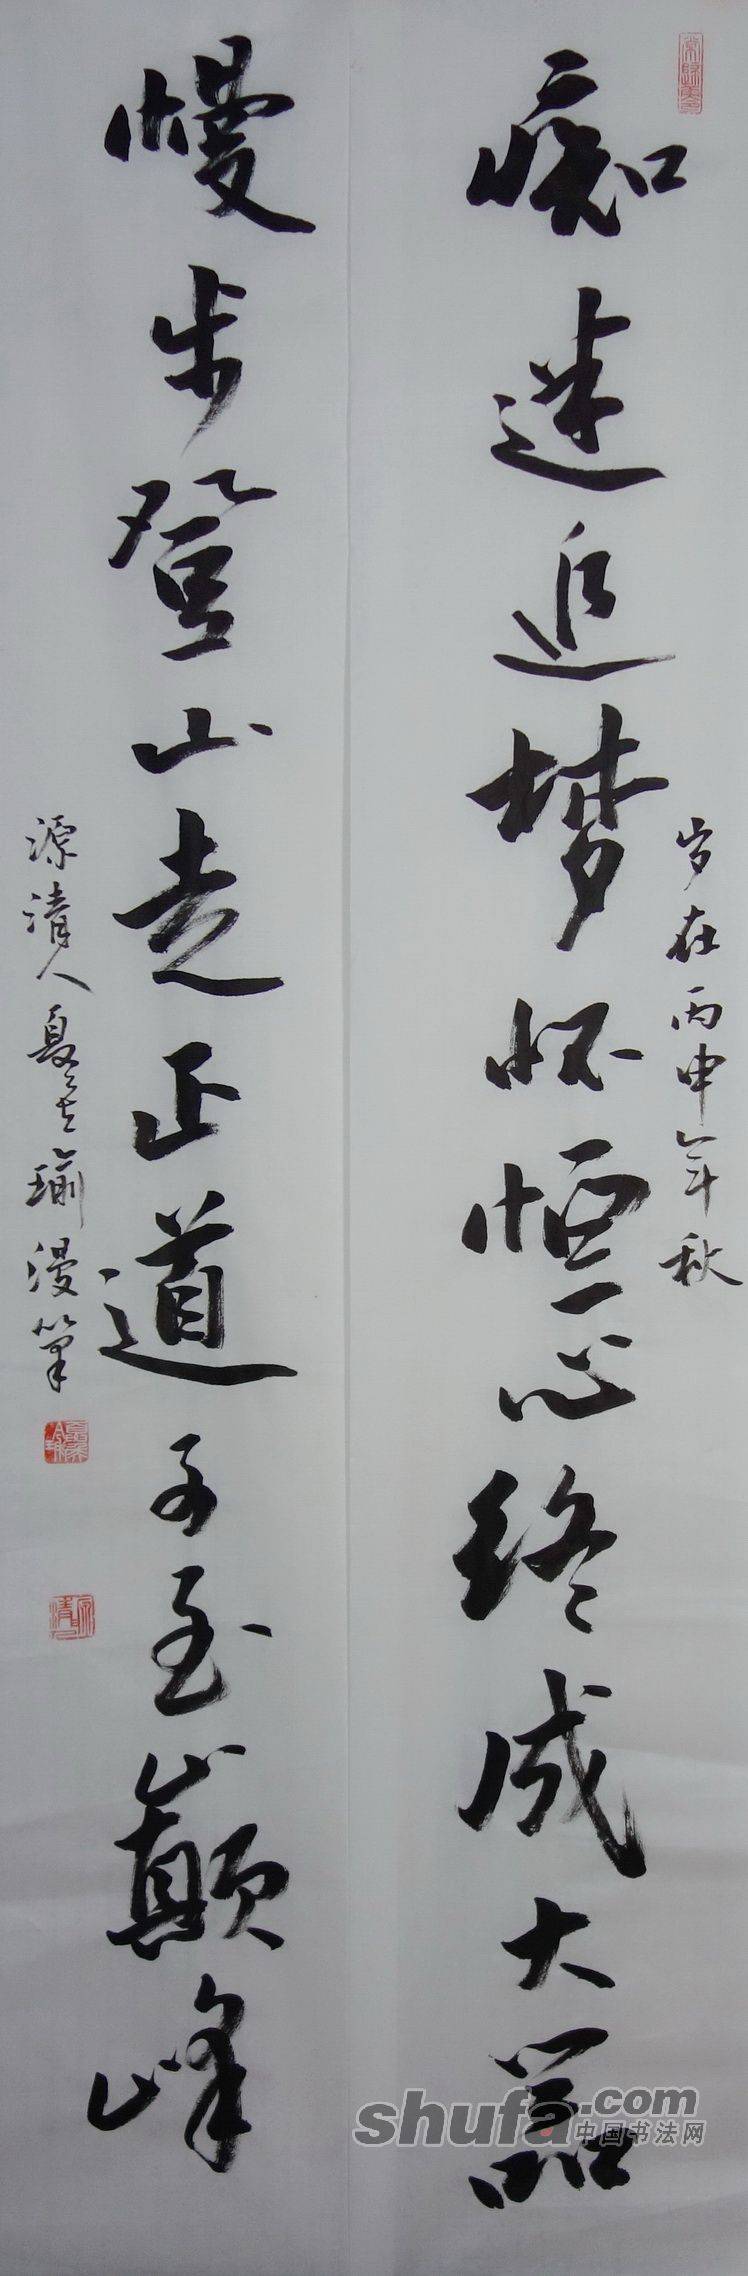 岁在丙申年秋
痴迷追梦怀恒心终成大器
慢步登山走正道至巅峰
源清人夏瑜漫笔
shufa.com
中国书法网